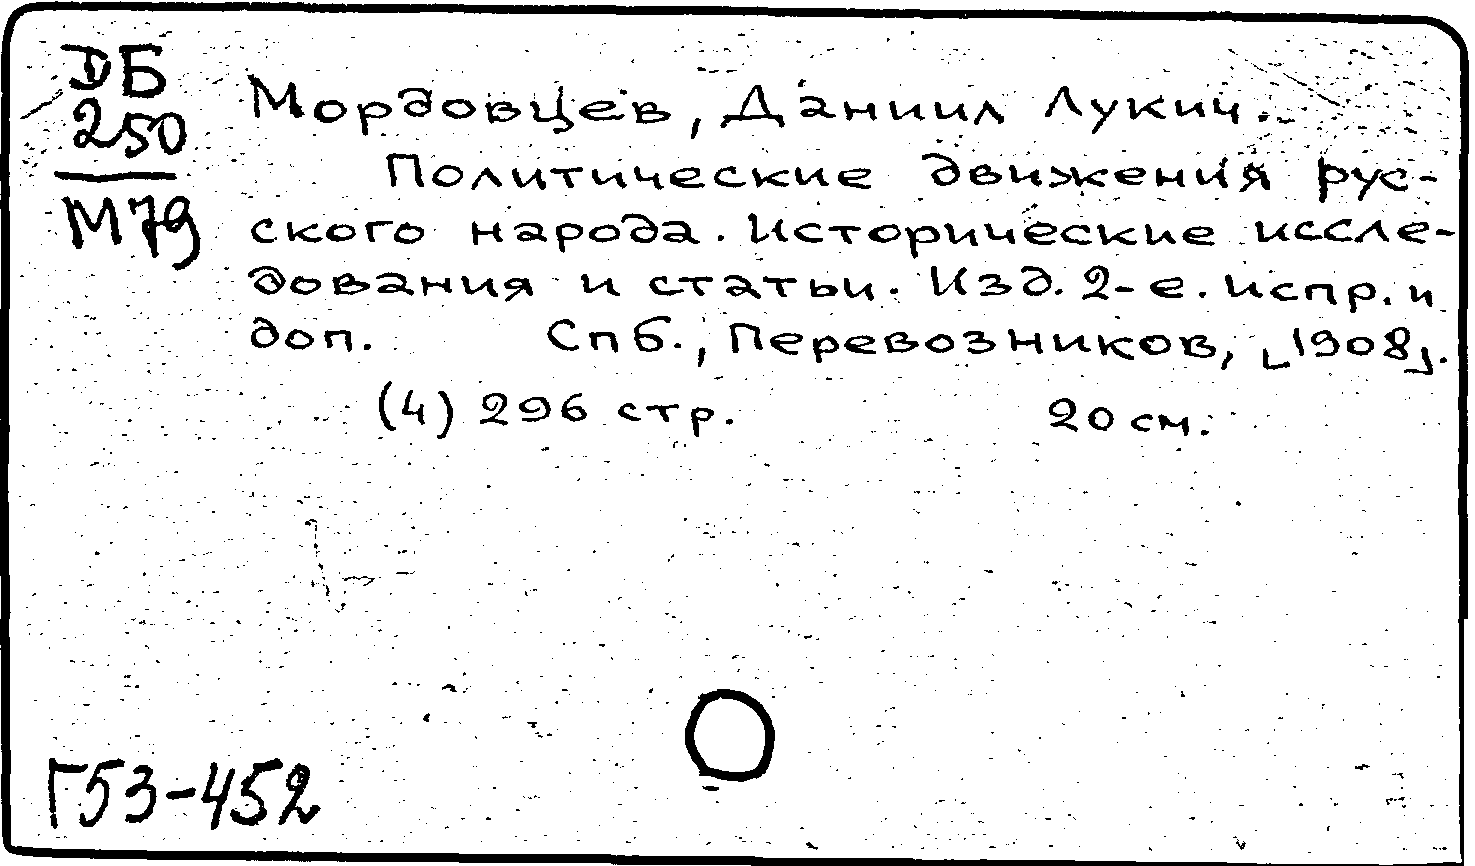 DБ
250
М79
Мордовцев, Даниил Лукич.
Политические движения рус-
ского народа. Исторические иссле-
дования и статьи. Изд. 2-е. испр. и
доп. Спб., Перевозников, [1908].
(4) 296 стр. 20 см.
Г53-452